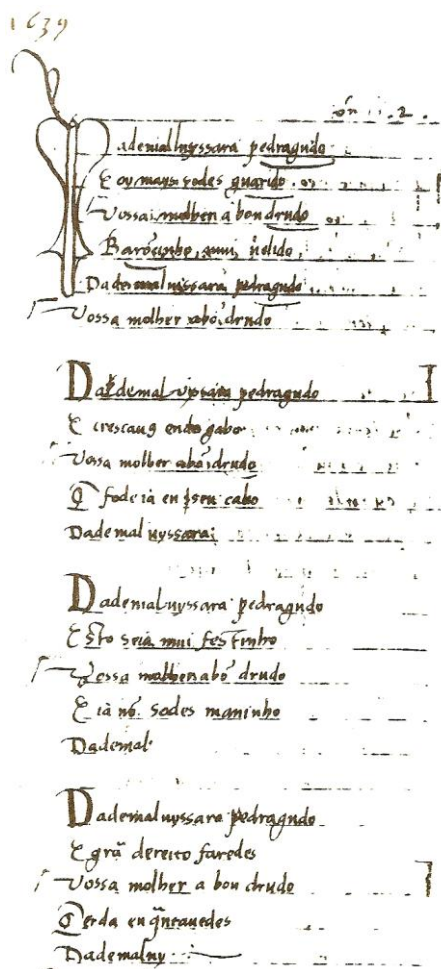 1639
ademal uyssara pedragudo
E oy mays sodes guarido
Vossa molher a bon drudo
Baroncinho mui uelido
Dademal uyssara pedragudo
Vossa molher abõ drudo
Dademal uyssara pedragudo
E crescaug endo gabo
Vossa molher abõ drudo
Q̃ fode ia en seu cabo
Dademal uyssara
Dademal uyssara pedragudo
Esto seia mui festinho
Vossa molher abõ drudo
E ià nõ sodes maninho
Dademal
Dademal uyssara pedragudo
E grã dereito faredes
Vossa molher a bon drudo
Q̃ erda en q̃nt auedes
Dademal uy